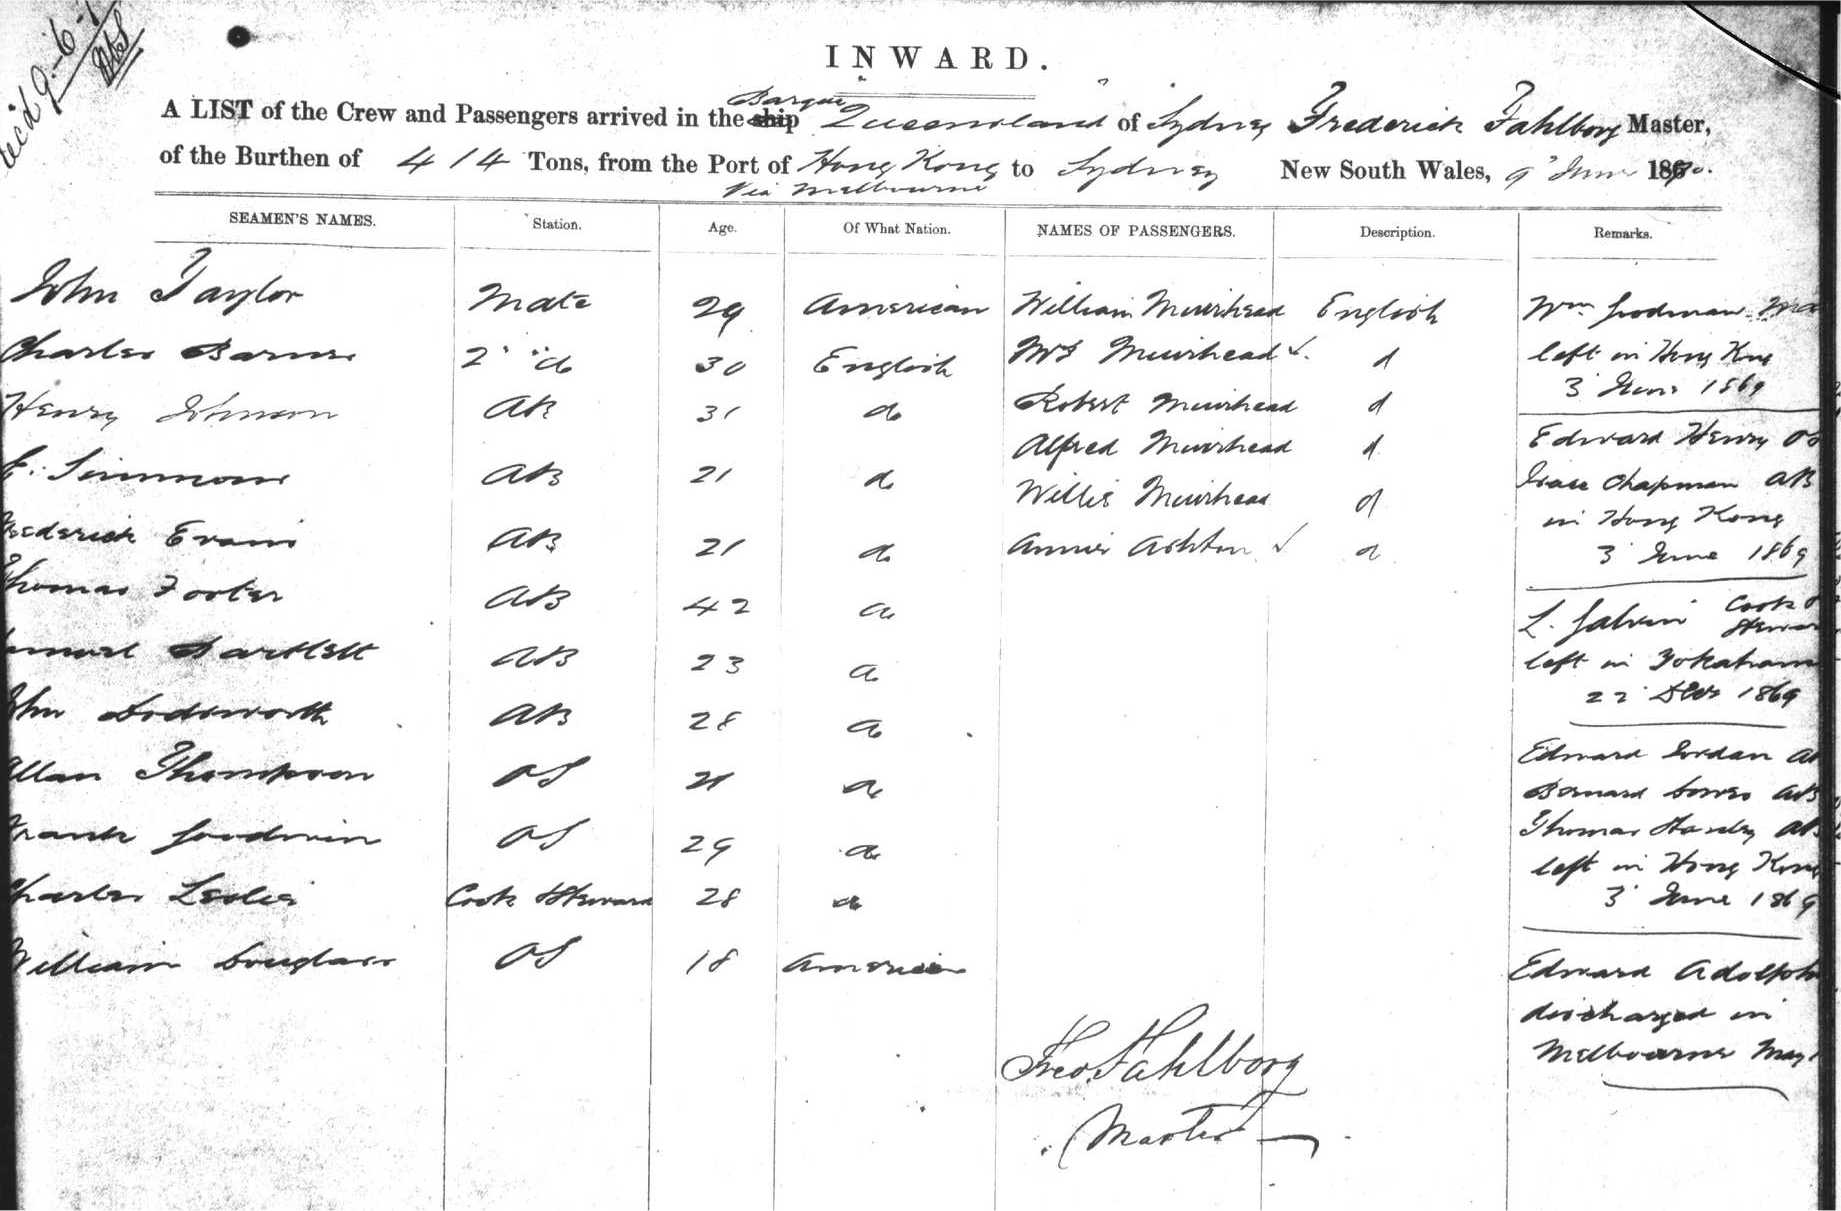 INWARD.
A LIST of the Crew and Passengers arrived in the ship Barque Queensland of Sydney Frederick Fahlborg Master,
of the Burthen of 414 Tons, from the Port of Hong Kong to Sydney New South Wales, 9 June 1870.
Via Melbourne
SEAMEN'S NAMES. Station. Age. Of What Nation. NAMES OF PASSENGERS. Description. Remarks.
John Taylor Mate 29 American William Muirhead English Wm Goodman
Charles Barnes 2 do 30 English Mrs Muirhead d left in Hong Kong
3 June 1869
Henry Johnson AB 31 do Robert Muirhead d
Alfred Muirhead d Edward Henry OS
E. Simmons AB 21 do Willis Muirhead d Isaac Chapman AB
in Hong Kong
Frederick Evans AB 21 do Annie Ashton d 3 June 1869
Thomas Foster AB 42 do L. Galvin Cook &
Steward
Samuel Bartlett AB 23 do left in Yokahama
22 Decr 1869
John Dodsworth AB 28 do
Allan Thompson OS 21 do Edward Jordan AB
Bernard AB
Frank Goodwin OS 29 do Thomas AB
left in Hong Kong
Charles Leslie Cook & Steward 28 do 3 June 1869
William Douglass OS 18 American Edward Adolph
discharged in
Melbourne May
Fred. Fahlborg
Master